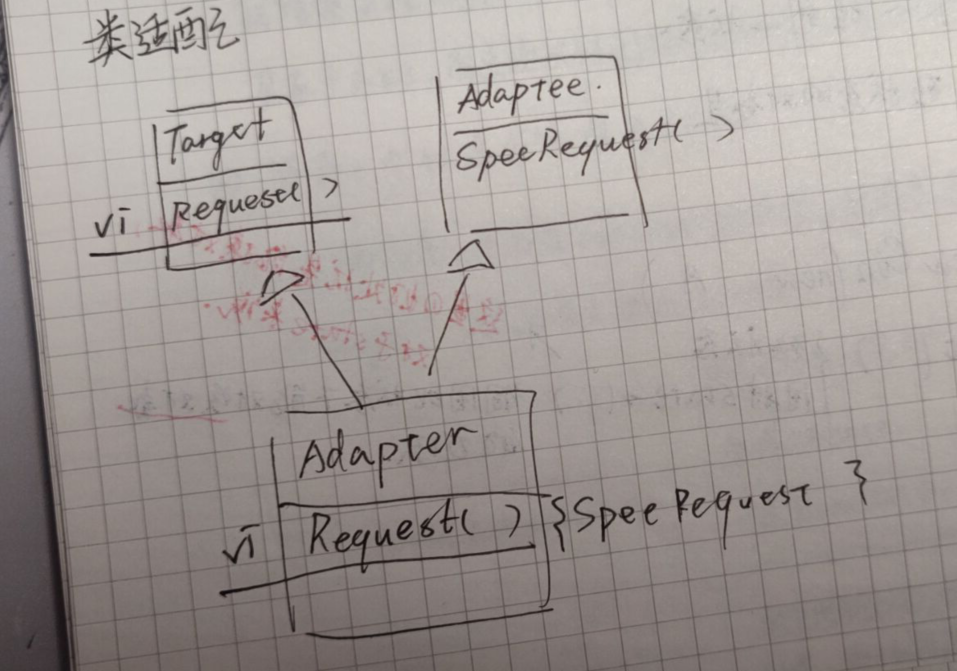 类适配
Target
vi Request( )
Adaptee.
SpeeRequest( )
Adapter
vi Request( ) {SpeeRequest }